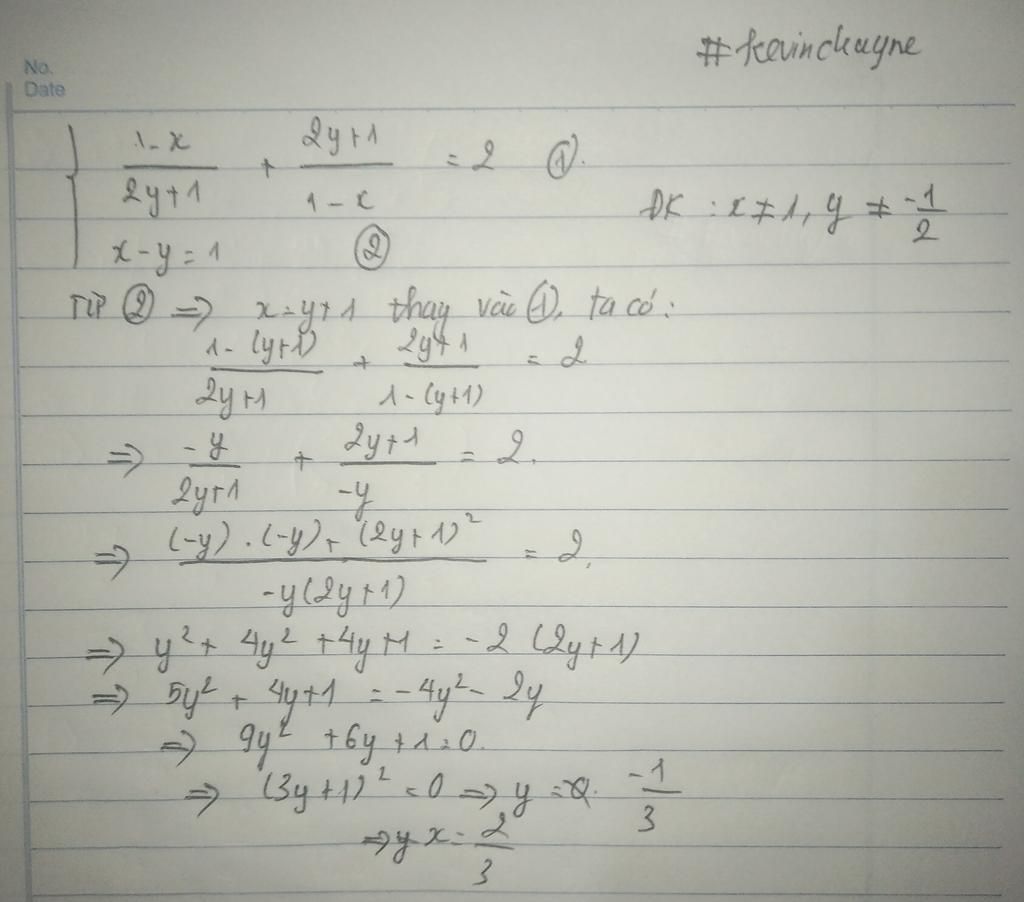 #kevinchayne
No.
Date
{ (1-x)/(2y+1) + (2y+1)/(1-x) = 2 ①.
x-y=1 ②
ĐK : x≠1, y ≠ -1/2
Từ ② => x=y+1 thay vào ①, ta có:
(1-(y+1))/(2y+1) + (2y+1)/(1-(y+1)) = 2
=> -y/(2y+1) + (2y+1)/-y = 2.
=> ((-y).(-y)+(2y+1)²)/(-y(2y+1)) = 2.
=> y²+ 4y² +4y+1 = -2 (2y+1)
=> 5y² + 4y+1 = -4y²- 2y
=> 9y² +6y+1=0.
=> (3y+1)² =0 => y = -1/3
=> x = 2/3